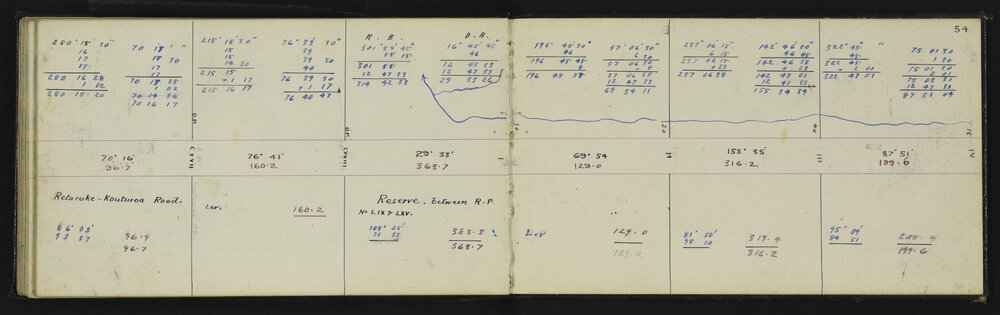 54
280° 15' 30"
16
17
17
280 16 28
1 02
280 15 20
70 17 ' "
18 30
17
17
70 14 36
70 16 17
215° 15' 30"
15
15
14 30
215 15
+1 17
215 16 19
76° 39' 30"
39
39 30
40
76 39 30
+1 17
76 40 47
R. B.
301° 54' 45"
55 15
301 55
12 47 33
314 42 33
D. B.
16° 45' 45"
46
16 45 53
12 47 33
29 33 26
196° 45' 30"
46
196 45 53
57° 06' 30"
6 30
57 06 38
12 47 33
69 54 11
237° 06' 15"
6 15
237 06 15
+23
237 06 38
142° 46' 30"
46 45
142 46 38
+23
142 47 01
12 47 33
155 34 34
322° 45' "
45
322 45
2 01
322 47 01
75 01 30
1 30
75 01 30
2 01
75 03 31
12 47 33
87 51 04
O.P.
CXVII
O.P.
CXVIII
I
20
II
40
III
51
IV
70° 16'
96.7
76° 41'
160.2
29° 33'
363.7
69° 54
129.0
155° 35'
316.2
87° 51'
199.6
Retaruke - Kouturoa Road.
86° 03'
93 57
96.9
96.7
Lev.
160.2
Reserve. between R.P.
No LIX & LXV.
108° 25'
71 35
383.3 ?
363.7
Lev
129.0
129.0
81° 50'
98 10
319.4
316.2
95° 09'
84 51
200.4
199.6